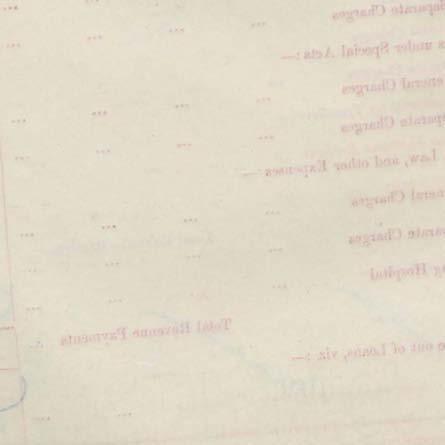 Separate Charges ... ... ... ...
under Special Acts:— ... ...
General Charges ... ... ...
Separate Charges ... ... ...
Law, and other Expenses :—
General Charges ... ... ...
Separate Charges ... ... ...
Hospital ... ... ...
Total Revenue Payments ...
out of Loans, viz. :—